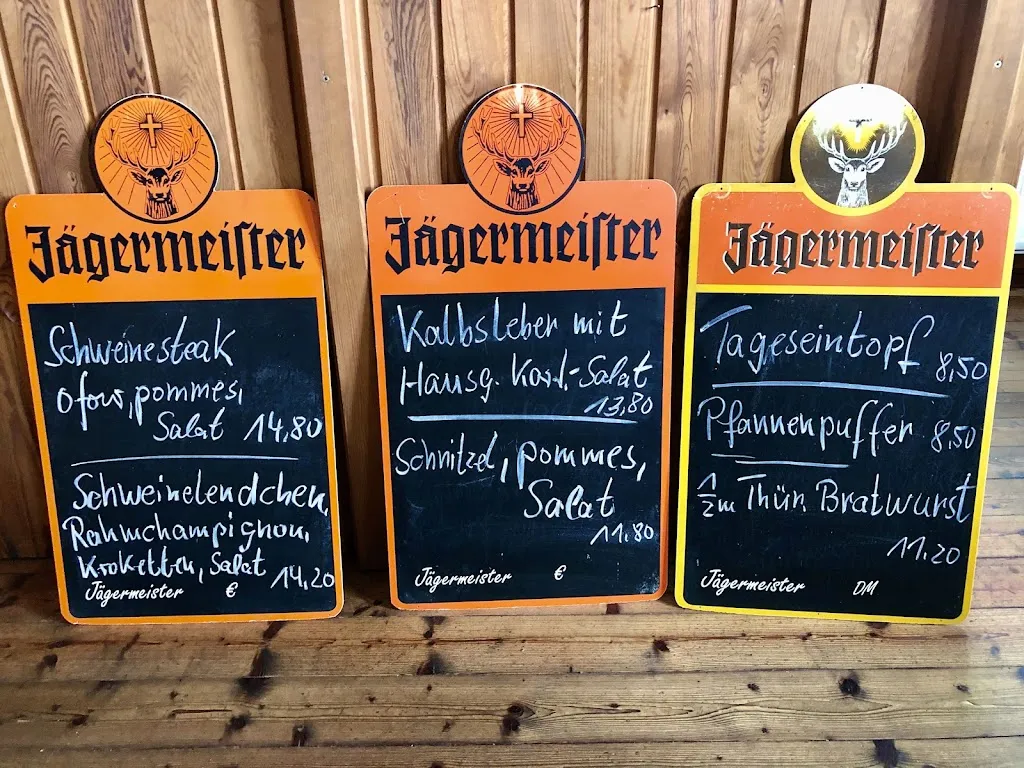 Jägermeister
Schweinesteak
ofour, pommes,
Salat 14,80
Schweinelendchen,
Rahmchampignon,
Kroketten, Salat 14,20
Jägermeister €
Jägermeister
Kalbsleber mit
Hausg. Kart.-Salat
13,80
Schnitzel, pommes,
Salat
11,80
Jägermeister €
Jägermeister
Tageseintopf 8,50
Pfannenpuffer 8,50
1/2m Thür. Bratwurst
11,20
Jägermeister DM